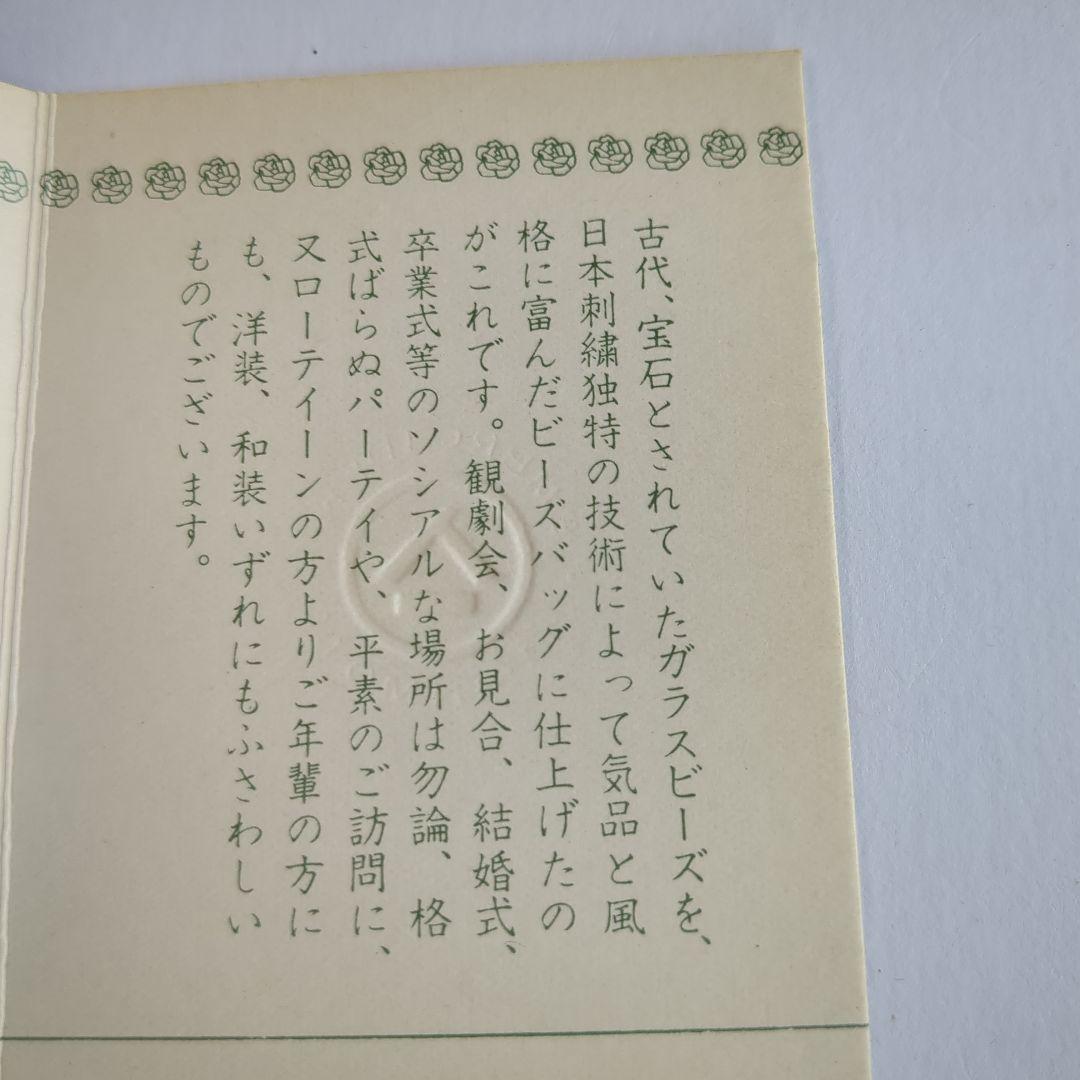 古代、宝石とされていたガラスビーズを、
日本刺繍独特の技術によって気品と風
格に富んだビーズバッグに仕上げたの
がこれです。観劇会、お見合、結婚式、
卒業式等のソシアルな場所は勿論、格
式ばらぬパーテイや、平素のご訪問に、
又ローティーンの方よりご年輩の方に
も、洋装、和装いずれにもふさわしい
ものでございます。